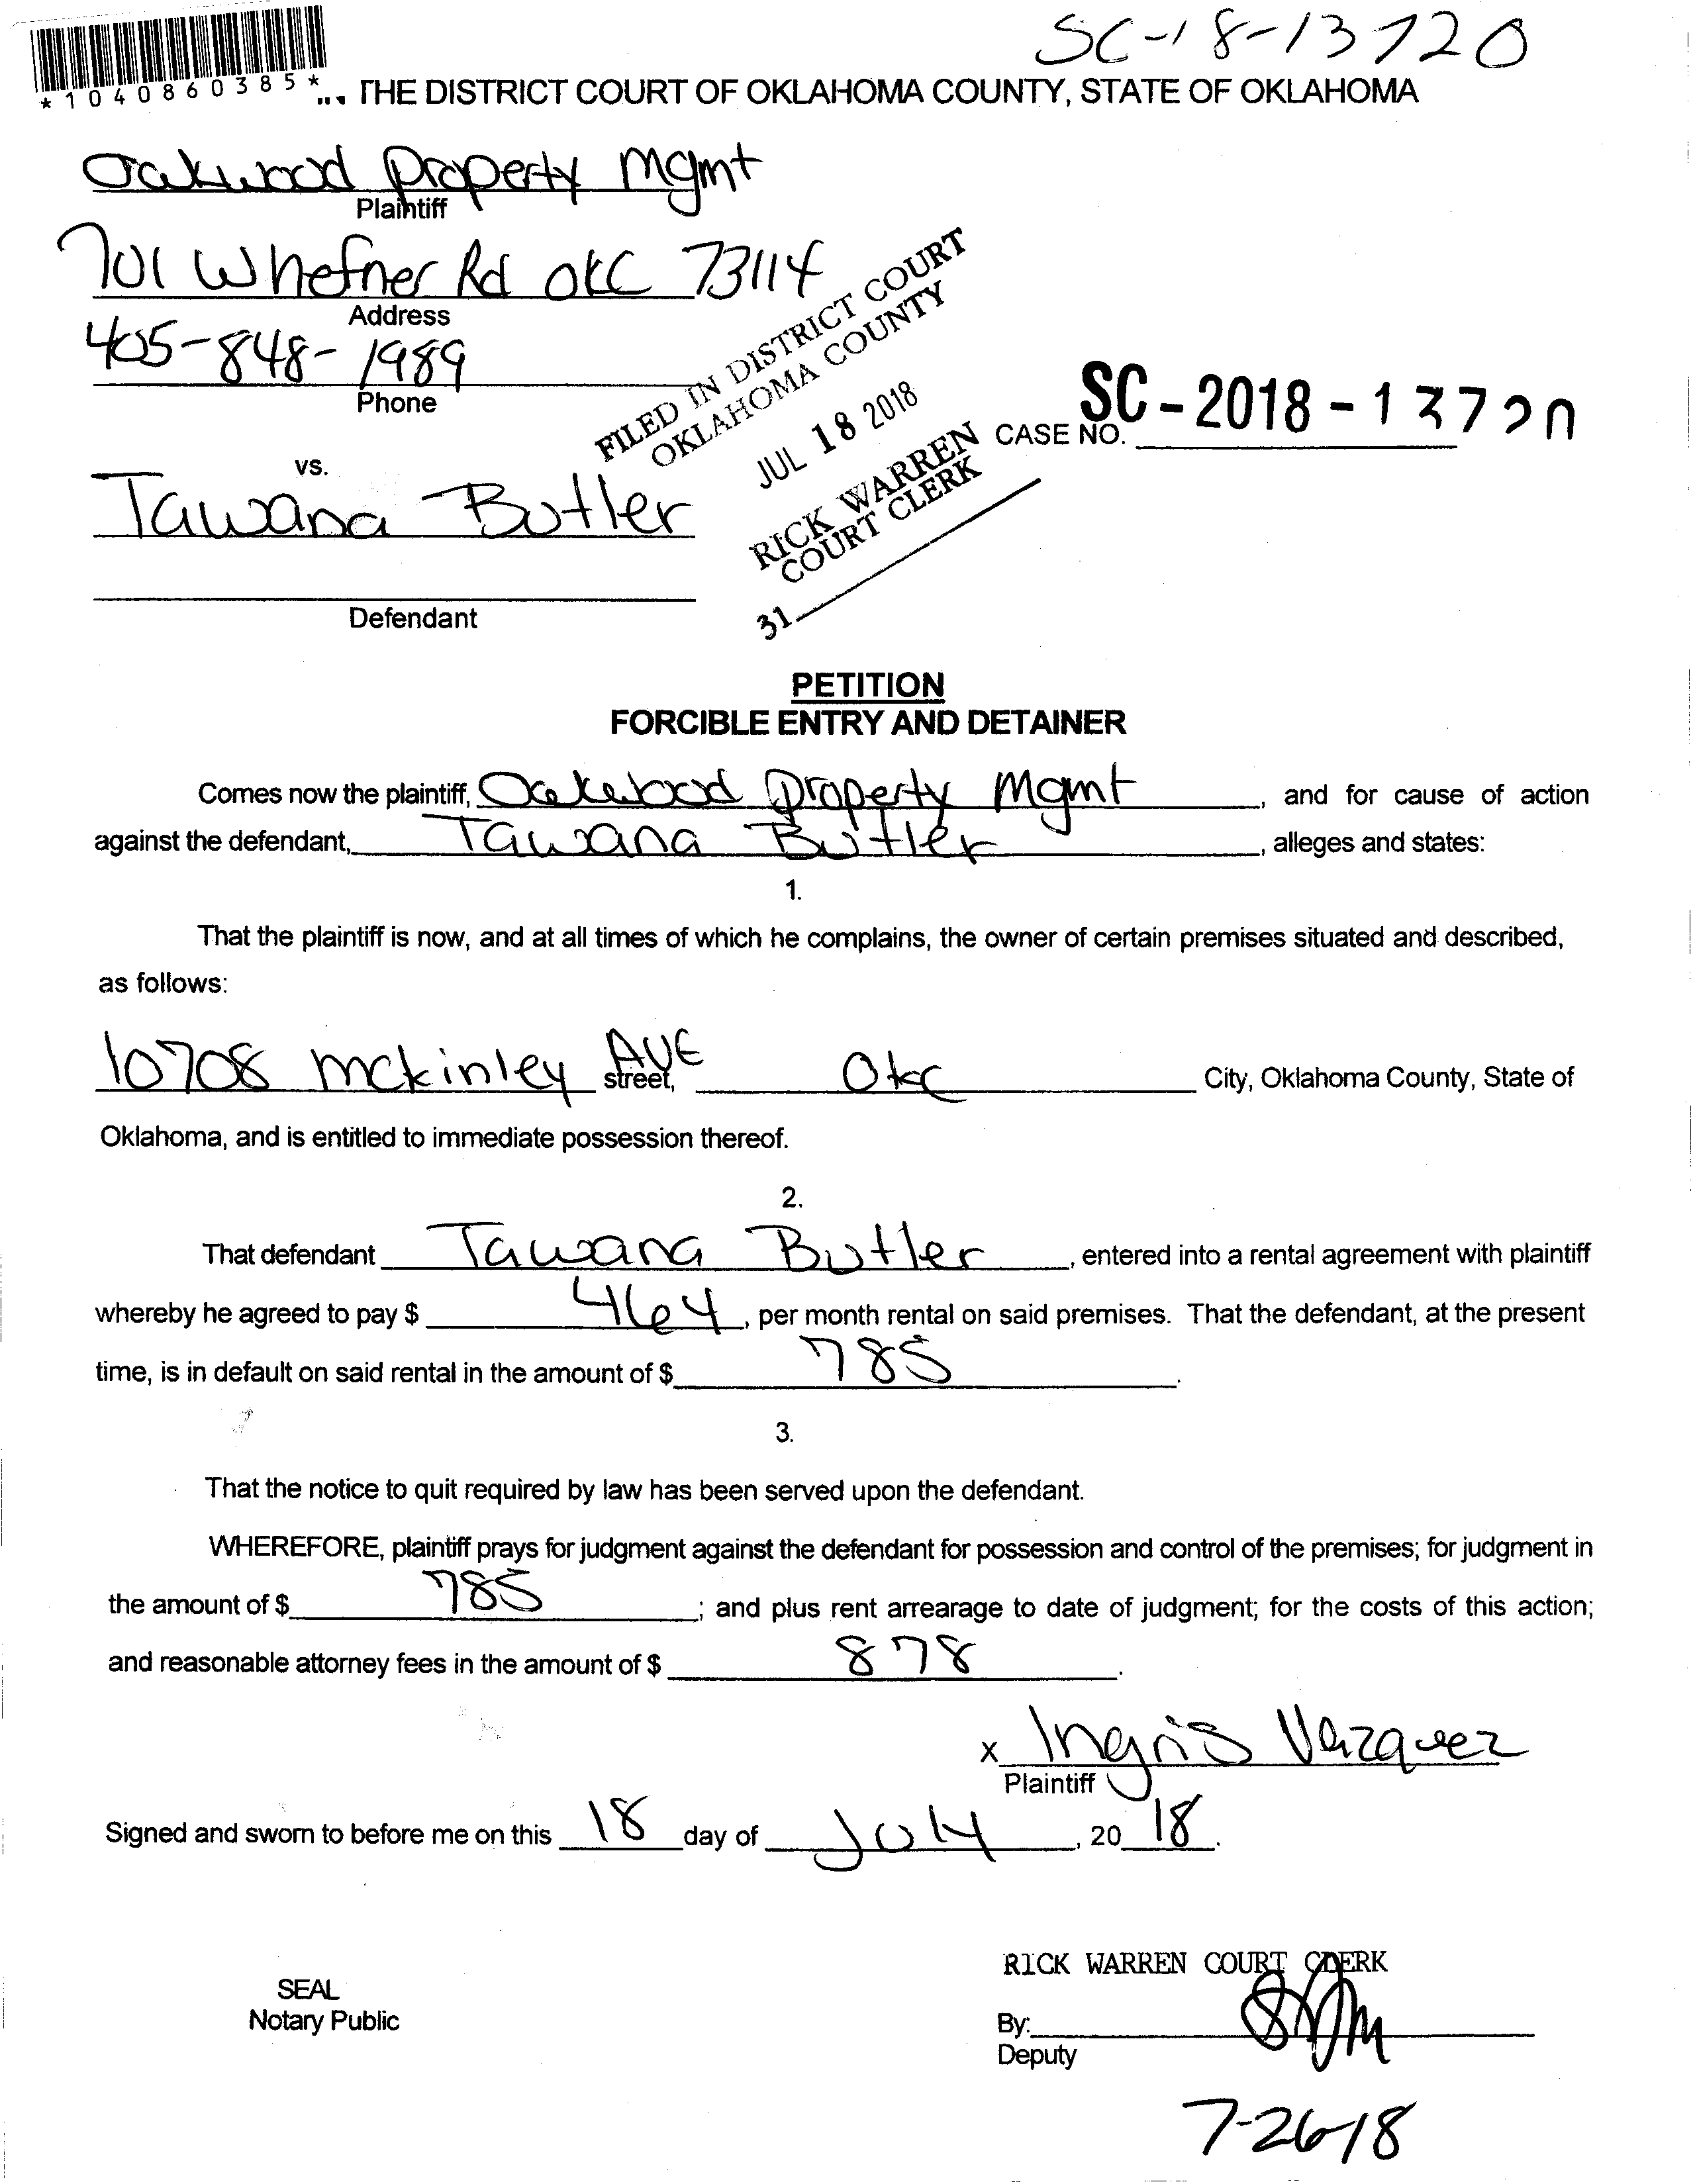 SC-18-13720
*1040860385*
THE DISTRICT COURT OF OKLAHOMA COUNTY, STATE OF OKLAHOMA
Oakwood Property Mgmt
Plaintiff
701 W hefner Rd OKC 73114
Address
405-848-1989
Phone
FILED IN DISTRICT COURT
OKLAHOMA COUNTY
JUL 18 2018
RICK WARREN
COURT CLERK
31
SC-2018-13720
CASE NO.
vs.
Tawana Butler
Defendant
PETITION
FORCIBLE ENTRY AND DETAINER
Comes now the plaintiff, Oakwood Property Mgmt, and for cause of action
against the defendant, Tawana Butler, alleges and states:
1.
That the plaintiff is now, and at all times of which he complains, the owner of certain premises situated and described,
as follows:
10708 mckinley AVE street, Okc City, Oklahoma County, State of
Oklahoma, and is entitled to immediate possession thereof.
2.
That defendant Tawana Butler, entered into a rental agreement with plaintiff
whereby he agreed to pay $ 464, per month rental on said premises. That the defendant, at the present
time, is in default on said rental in the amount of $ 785.
3.
That the notice to quit required by law has been served upon the defendant.
WHEREFORE, plaintiff prays for judgment against the defendant for possession and control of the premises; for judgment in
the amount of $ 785; and plus rent arrearage to date of judgment; for the costs of this action;
and reasonable attorney fees in the amount of $ 878.
x Ingris Vazquez
Plaintiff
Signed and sworn to before me on this 18 day of July, 20 18.
RICK WARREN COURT CLERK
SEAL
Notary Public
By:
Deputy
7-26-18